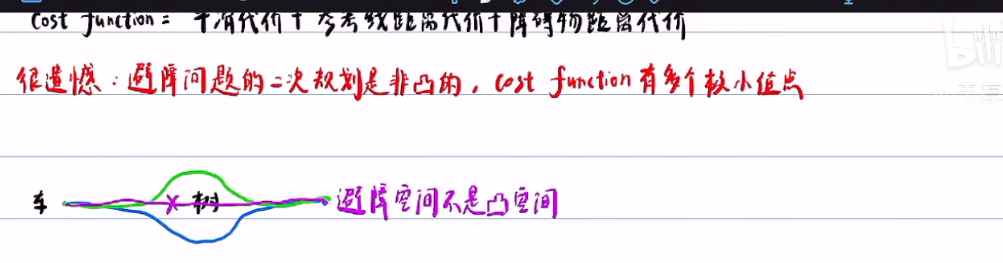 cost function = 平滑代价 + 参考线距离代价 + 障碍物距离代价
很遗憾：避障问题的二次规划是非凸的，cost function 有多个极小值点
车 × 树 避障空间不是凸空间